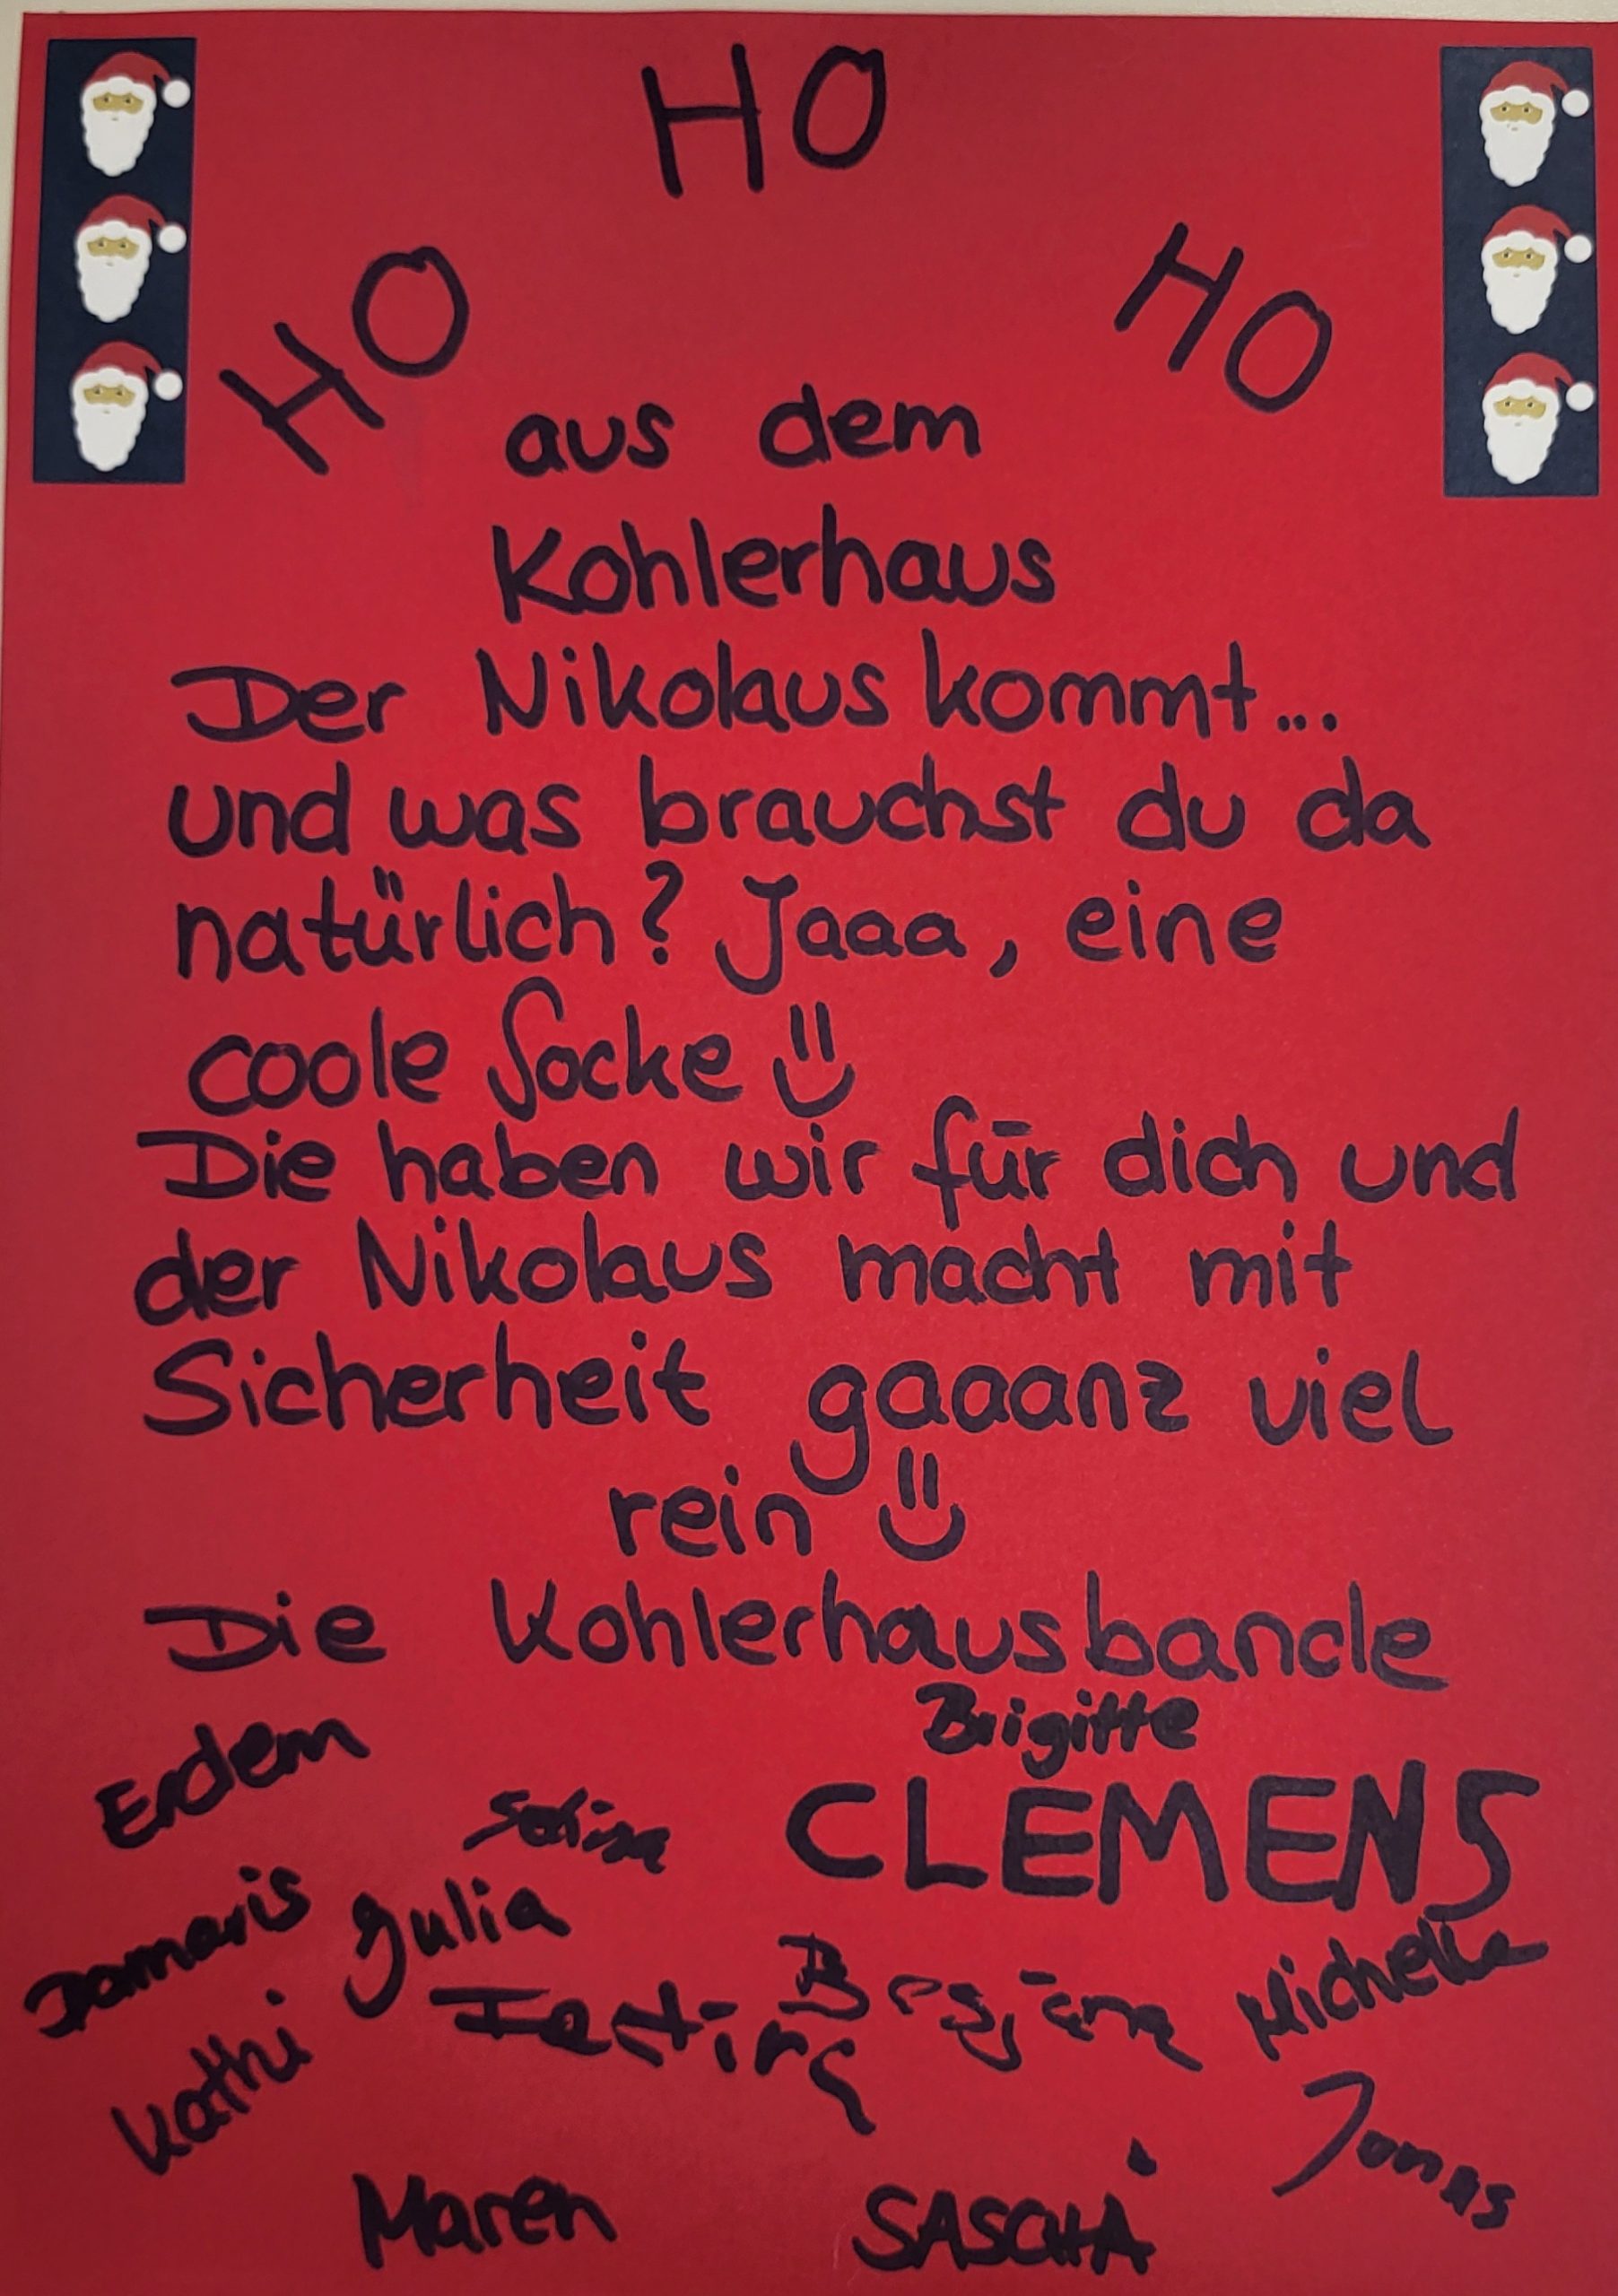 HO
HO
HO
aus dem
Kohlerhaus
Der Nikolaus kommt...
und was brauchst du da
natürlich? Jaaa, eine
coole Socke
Die haben wir für dich und
der Nikolaus macht mit
Sicherheit gaaanz viel
rein
Die Kohlerhausbande
Brigitte
Erdem
CLEMENS
Damaris
Julia
Michelle
Kathi
Jonas
Maren
SASCHA